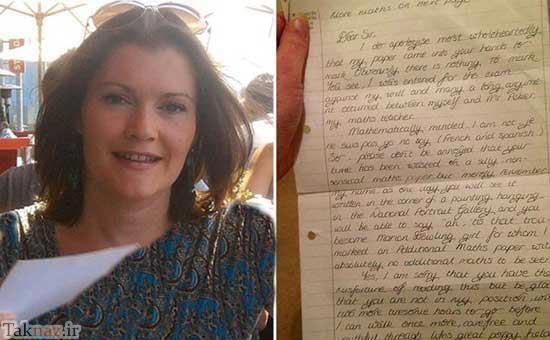 More maths on next page
Dear Sir,
I do apologise most wholeheartedly
that my paper came into your hands to
mark. Obviously, there is nothing to mark.
You see, I was entered for the exam
against my will and many a long argume
nt occurred between myself and Mr
my maths teacher.
Mathematically minded I am not, je
ne suis pas, yo no soy, (French and Spanish)
So please don't be annoyed that your
time has been wasted on a silly non-
sensical maths paper but merely remember
my name as one day, you will see it
written in the corner of a painting, hanging
in the National Portrait Gallery, and you
will be able to say 'ah, is that
become Marion girl for whom I
marked an Additional Maths paper with
absolutely no additional maths to be seen
Yes, I am sorry that you have the
misfortune of reading this but be glad
that you are not in my position with
two more tiresome hours to go before
I can walk once more, carefree and
youthful through life's great poppy field
Taknaz.ir